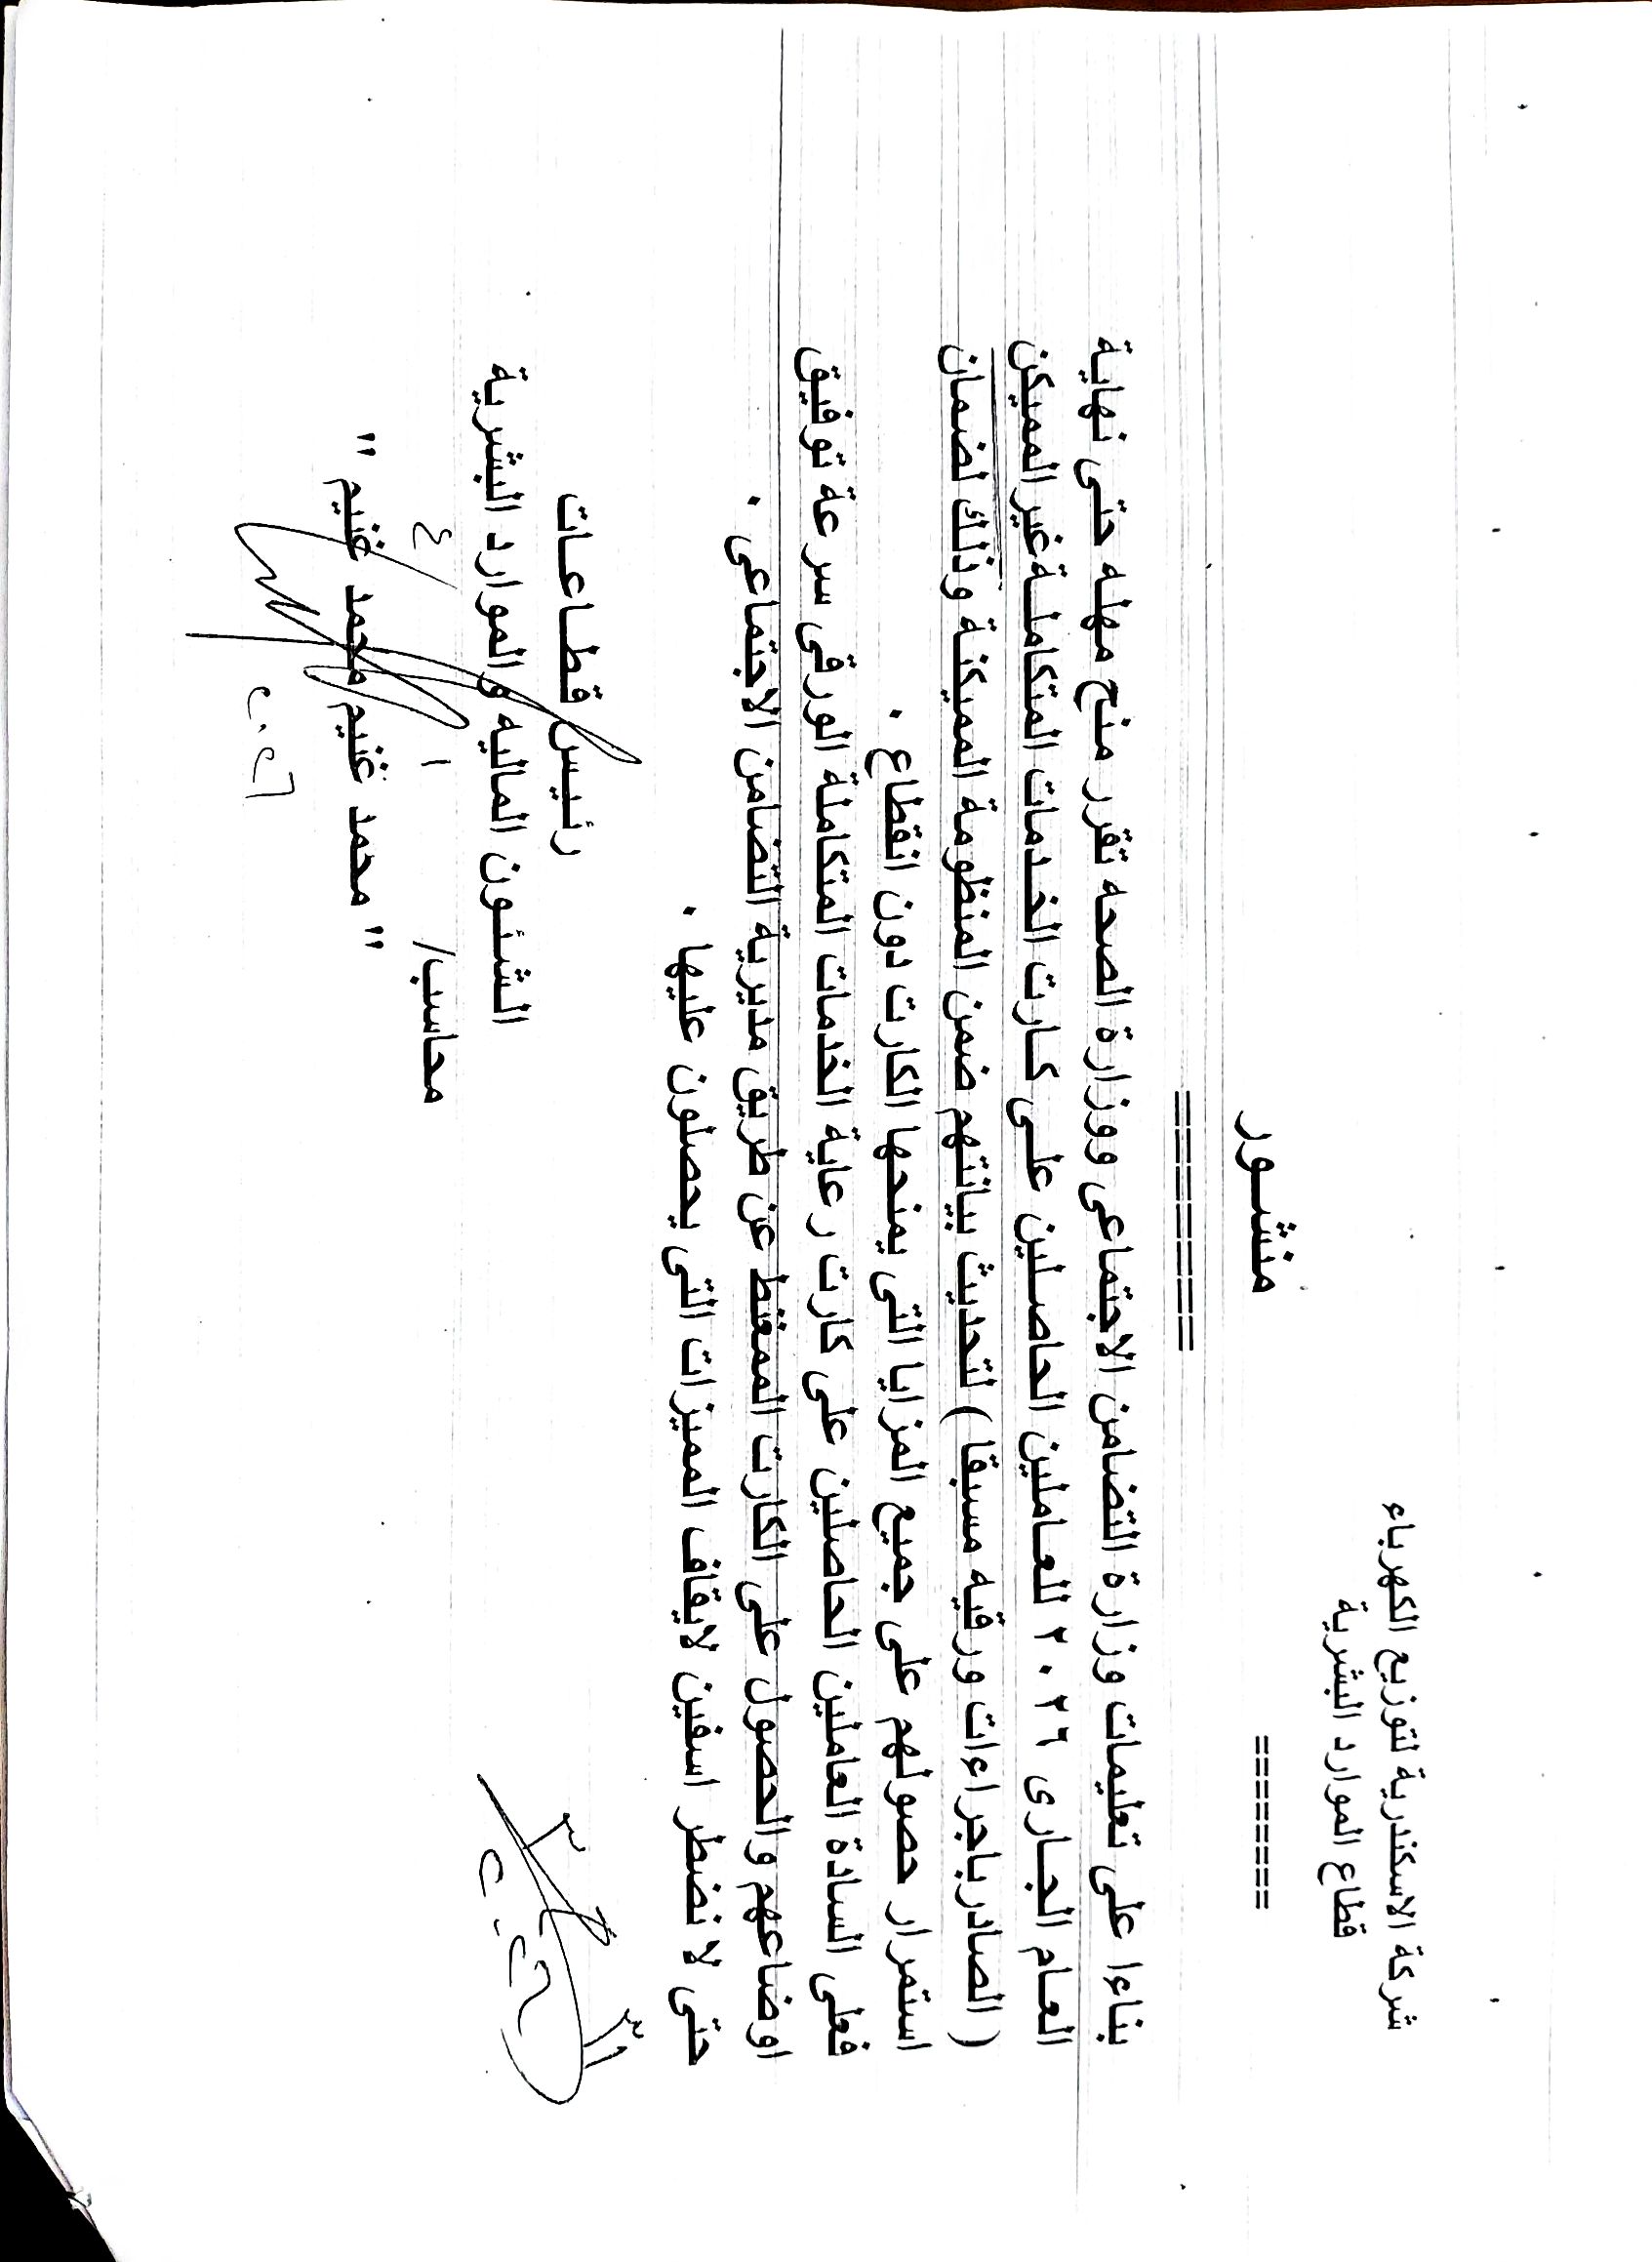 شركة الاسكندرية لتوزيع الكهرباء
قطاع الموارد البشرية
========
منشور
===========
بناءا على تعليمات وزارة التضامن الاجتماعى ووزارة الصحه تقرر منح مهله حتى نهاية
العام الجارى ٢٠٢٦ للعاملين الحاصلين على كارت الخدمات المتكاملة غير المميكن
( الصادر باجراءات ورقيه مسبقا ) لتحديث بياناتهم ضمن المنظومة المميكنة وذلك لضمان
استمرار حصولهم على جميع المزايا التى يمنحها الكارت دون انقطاع .
فعلى السادة العاملين الحاصلين على كارت رعاية الخدمات المتكاملة الورقى سرعة توفيق
اوضاعهم والحصول على الكارت الممغنط عن طريق مديرية التضامن الاجتماعى .
حتى لا نضطر اسفين لايقاف المميزات التى يحصلون عليها .
رئيس قطاعات
الشئون الماليه و الموارد البشرية
محاسب/
" محمد غنيم محمد غنيم "
٢٠٢٦